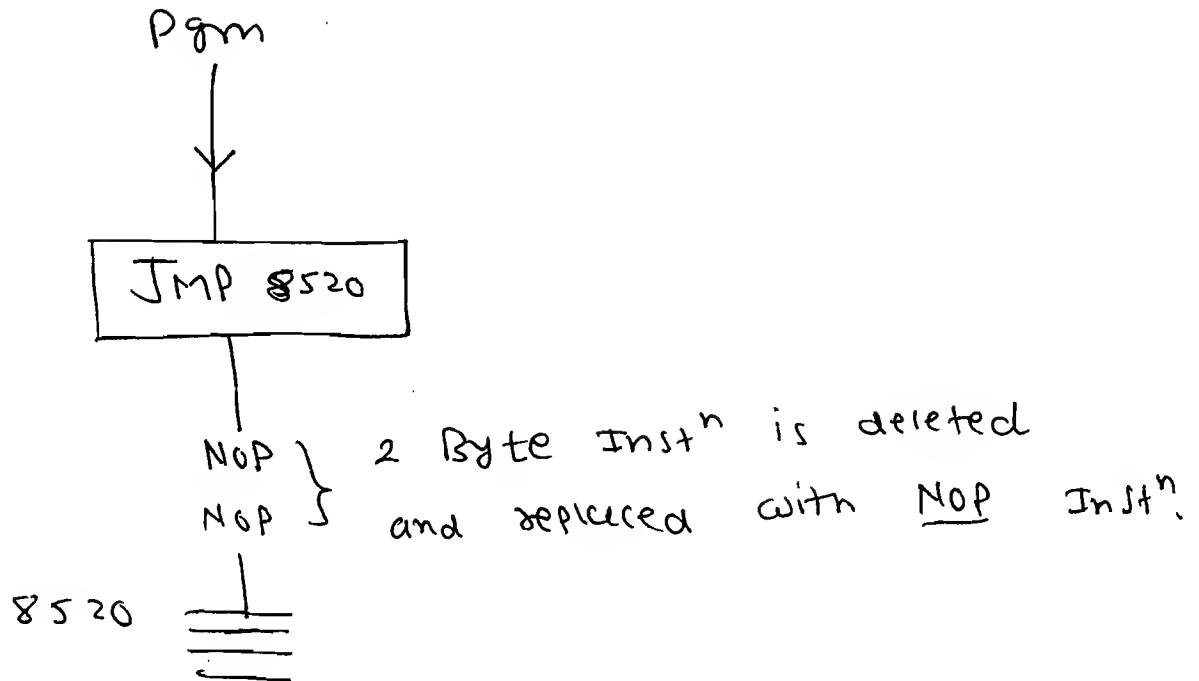 Pgm
JMP 8520
NOP } 2 Byte Instⁿ is deleted
NOP and replaced with NOP Instⁿ.
8520